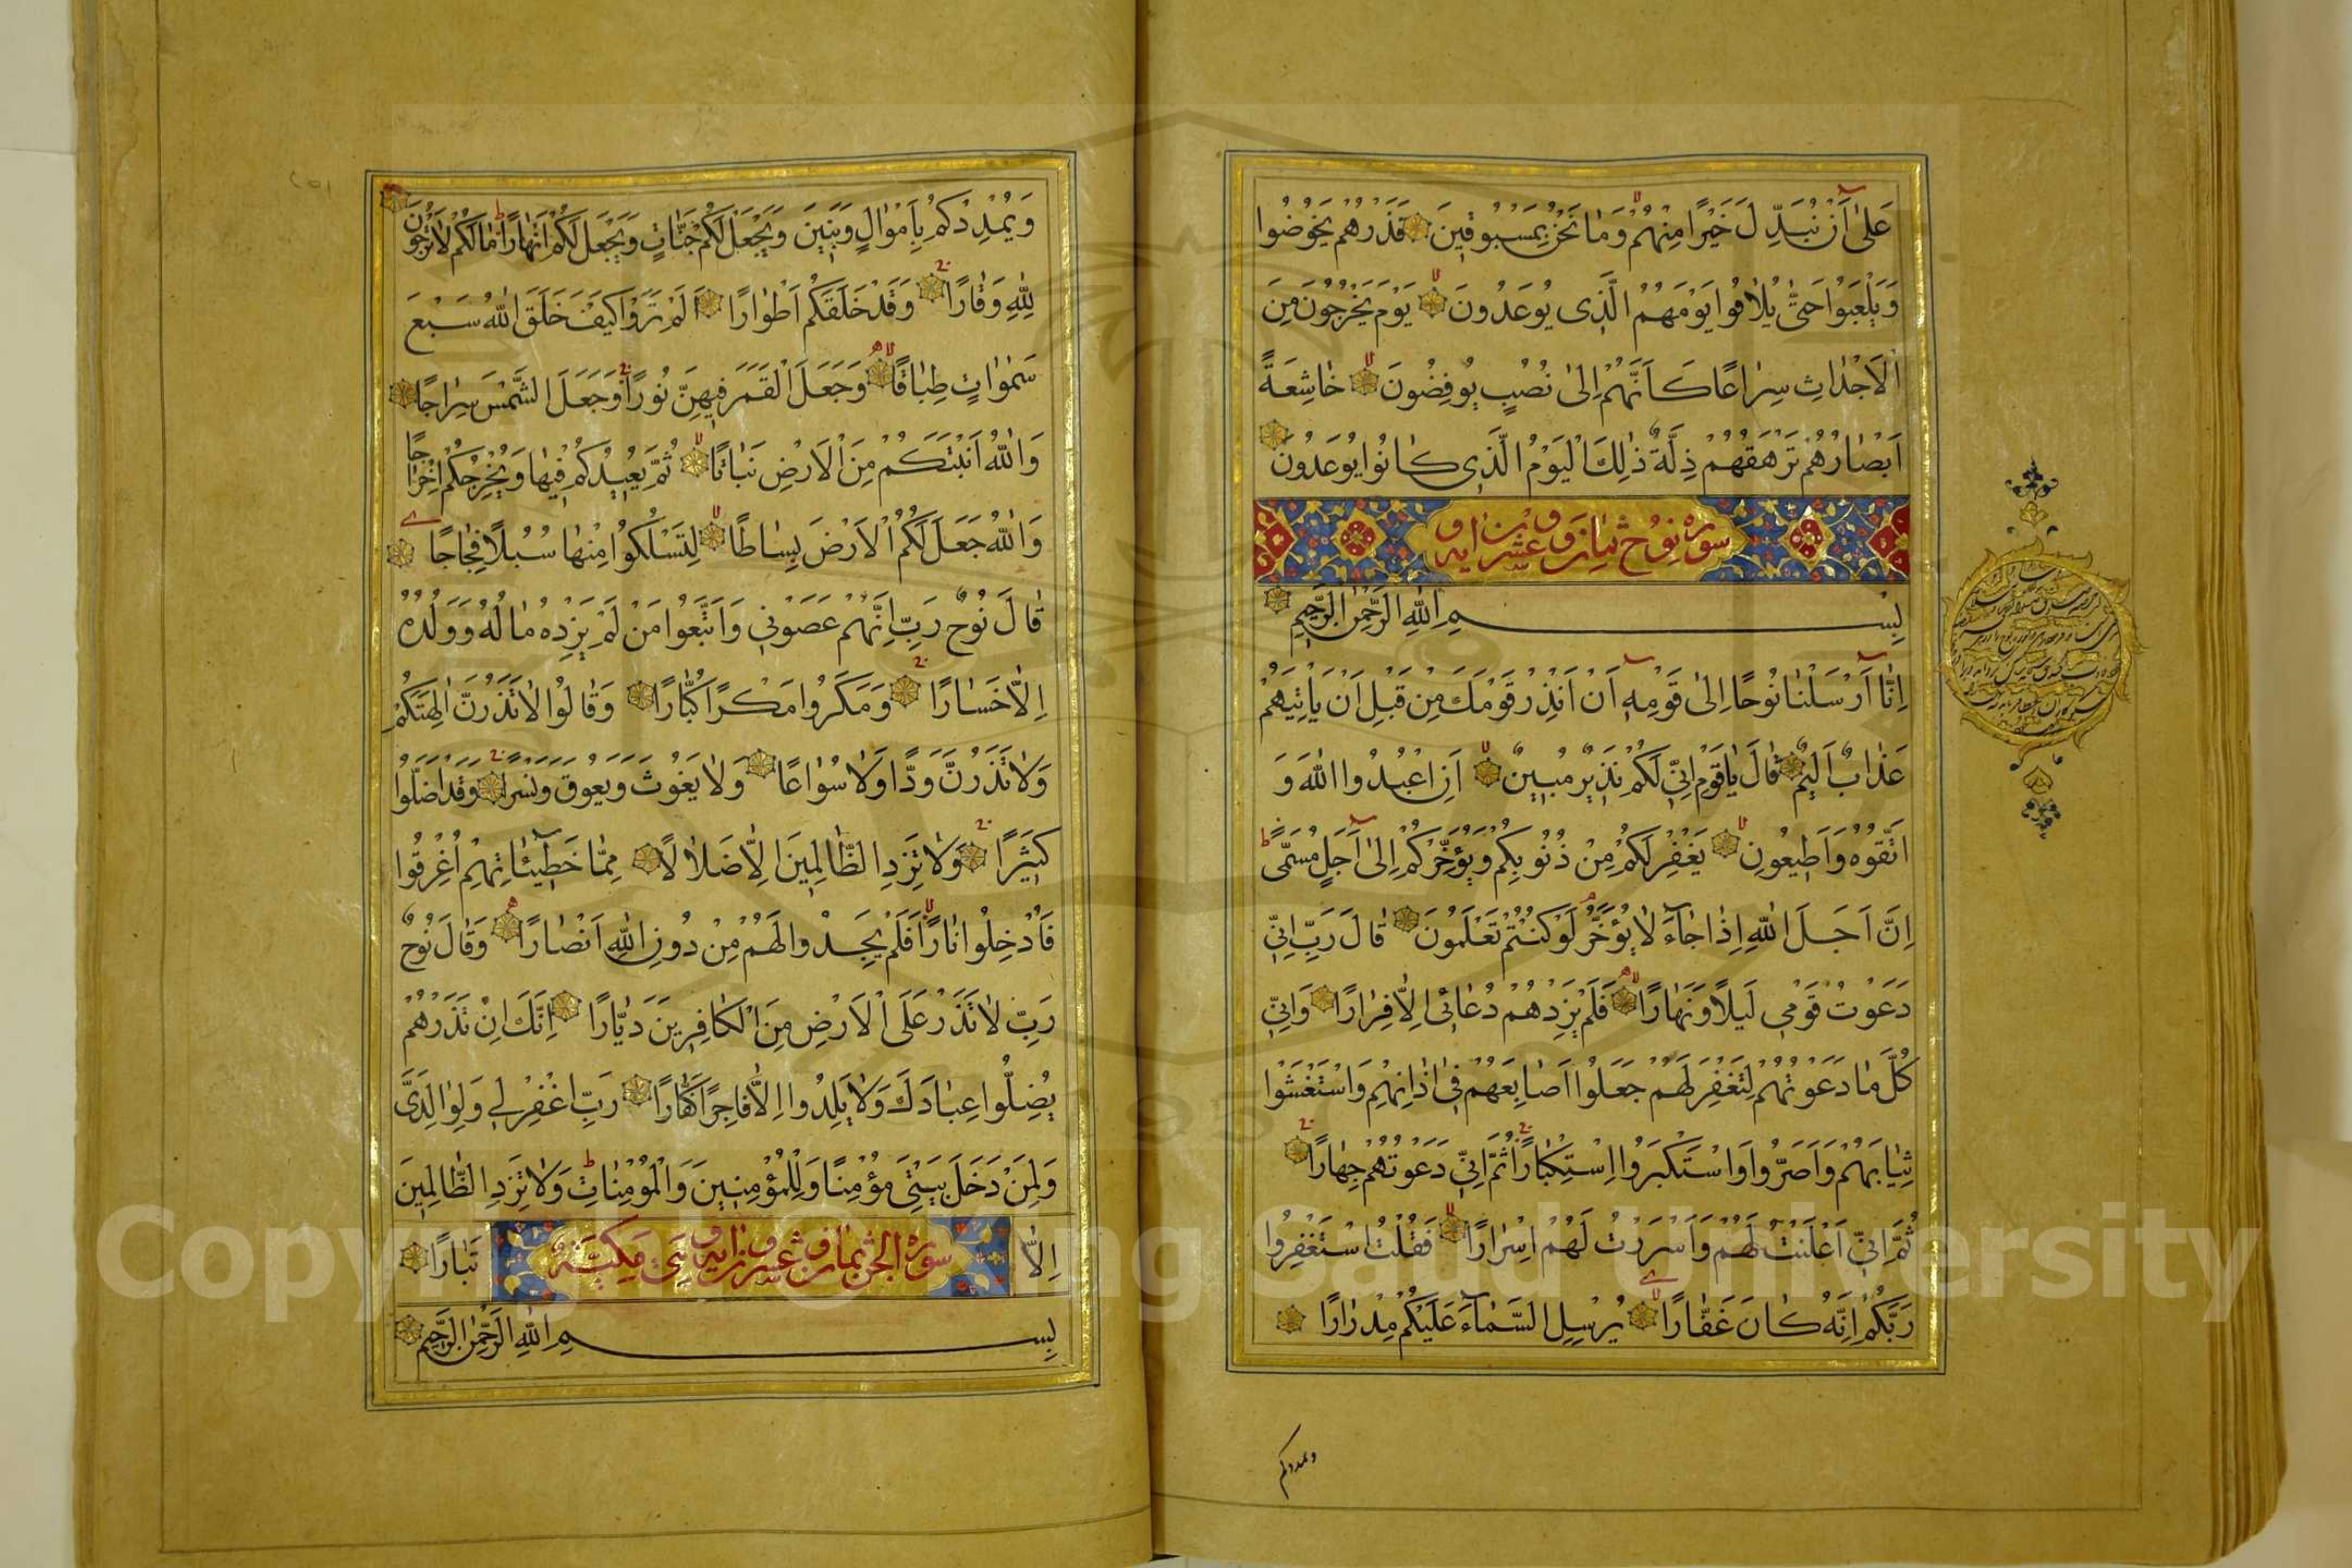 عَلٰى اَنْ نُبَدِّلَ خَيْرًا مِنْهُمْ وَمٰا نَحْنُ بِمَسْبُوقٖينَ فَذَرْهُمْ يَخُوضُوا
وَيَلْعَبُوا حَتّٰى يُلاٰقُوا يَوْمَهُمُ الَّذٖى يُوعَدُونَ يَوْمَ يَخْرُجُونَ مِنَ
الْاَجْدٰاثِ سِرٰاعًا كَاَنَّهُمْ اِلٰى نُصُبٍ يُوفِضُونَ خٰاشِعَةً
اَبْصٰارُهُمْ تَرْهَقُهُمْ ذِلَّةٌ ذٰلِكَ الْيَوْمُ الَّذٖى كٰانُوا يُوعَدُونَ
سورة نوح ثمان و عشرون اية
بِسْمِ اللهِ الرَّحْمٰنِ الرَّحٖيمِ
اِنّٰا اَرْسَلْنٰا نُوحًا اِلٰى قَوْمِهٖ اَنْ اَنْذِرْ قَوْمَكَ مِنْ قَبْلِ اَنْ يَأْتِيَهُمْ
عَذٰابٌ اَلٖيمٌ قٰالَ يٰا قَوْمِ اِنّٖى لَكُمْ نَذٖيرٌ مُبٖينٌ اَنِ اعْبُدُوا اللهَ وَ
اتَّقُوهُ وَاَطٖيعُونِ يَغْفِرْ لَكُمْ مِنْ ذُنُوبِكُمْ وَيُؤَخِّرْكُمْ اِلٰى اَجَلٍ مُسَمًّى
اِنَّ اَجَلَ اللهِ اِذٰا جٰاءَ لاٰ يُؤَخَّرُ لَوْ كُنْتُمْ تَعْلَمُونَ قٰالَ رَبِّ اِنّٖى
دَعَوْتُ قَوْمٖى لَيْلًا وَنَهٰارًا فَلَمْ يَزِدْهُمْ دُعٰائٖى اِلاّٰ فِرٰارًا وَاِنّٖى
كُلَّمٰا دَعَوْتُهُمْ لِتَغْفِرَ لَهُمْ جَعَلُوا اَصٰابِعَهُمْ فٖى اٰذٰانِهِمْ وَاسْتَغْشَوْا
ثِيٰابَهُمْ وَاَصَرُّوا وَاسْتَكْبَرُوا اسْتِكْبٰارًا ثُمَّ اِنّٖى دَعَوْتُهُمْ جِهٰارًا
ثُمَّ اِنّٖى اَعْلَنْتُ لَهُمْ وَاَسْرَرْتُ لَهُمْ اِسْرٰارًا فَقُلْتُ اسْتَغْفِرُوا
رَبَّكُمْ اِنَّهُ كٰانَ غَفّٰارًا يُرْسِلِ السَّمٰاءَ عَلَيْكُمْ مِدْرٰارًا
ويمددكم
وَيُمْدِدْكُمْ بِاَمْوٰالٍ وَبَنٖينَ وَيَجْعَلْ لَكُمْ جَنّٰاتٍ وَيَجْعَلْ لَكُمْ اَنْهٰارًا مٰا لَكُمْ لاٰ تَرْجُونَ
لِلّٰهِ وَقٰارًا وَقَدْ خَلَقَكُمْ اَطْوٰارًا اَلَمْ تَرَوْا كَيْفَ خَلَقَ اللهُ سَبْعَ
سَمٰوٰاتٍ طِبٰاقًا وَجَعَلَ الْقَمَرَ فٖيهِنَّ نُورًا وَجَعَلَ الشَّمْسَ سِرٰاجًا
وَاللهُ اَنْبَتَكُمْ مِنَ الْاَرْضِ نَبٰاتًا ثُمَّ يُعٖيدُكُمْ فٖيهٰا وَيُخْرِجُكُمْ اِخْرٰاجًا
وَاللهُ جَعَلَ لَكُمُ الْاَرْضَ بِسٰاطًا لِتَسْلُكُوا مِنْهٰا سُبُلًا فِجٰاجًا
قٰالَ نُوحٌ رَبِّ اِنَّهُمْ عَصَوْنٖى وَاتَّبَعُوا مَنْ لَمْ يَزِدْهُ مٰالُهُ وَوَلَدُهُ
اِلاّٰ خَسٰارًا وَمَكَرُوا مَكْرًا كُبّٰارًا وَقٰالُوا لاٰ تَذَرُنَّ اٰلِهَتَكُمْ
وَلاٰ تَذَرُنَّ وَدًّا وَلاٰ سُوٰاعًا وَلاٰ يَغُوثَ وَيَعُوقَ وَنَسْرًا وَقَدْ اَضَلُّوا
كَثٖيرًا وَلاٰ تَزِدِ الظّٰالِمٖينَ اِلاّٰ ضَلاٰلًا مِمّٰا خَطٖيئٰاتِهِمْ اُغْرِقُوا
فَاُدْخِلُوا نٰارًا فَلَمْ يَجِدُوا لَهُمْ مِنْ دُونِ اللهِ اَنْصٰارًا وَقٰالَ نُوحٌ
رَبِّ لاٰ تَذَرْ عَلَى الْاَرْضِ مِنَ الْكٰافِرٖينَ دَيّٰارًا اِنَّكَ اِنْ تَذَرْهُمْ
يُضِلُّوا عِبٰادَكَ وَلاٰ يَلِدُوا اِلاّٰ فٰاجِرًا كَفّٰارًا رَبِّ اغْفِرْ لٖى وَلِوٰالِدَىَّ
وَلِمَنْ دَخَلَ بَيْتِىَ مُؤْمِنًا وَلِلْمُؤْمِنٖينَ وَالْمُؤْمِنٰاتِ وَلاٰ تَزِدِ الظّٰالِمٖينَ
اِلاّٰ تَبٰارًا
سورة الجن ثمان و عشرون اية مكية
بِسْمِ اللهِ الرَّحْمٰنِ الرَّحٖيمِ
Copyright © King Saud University